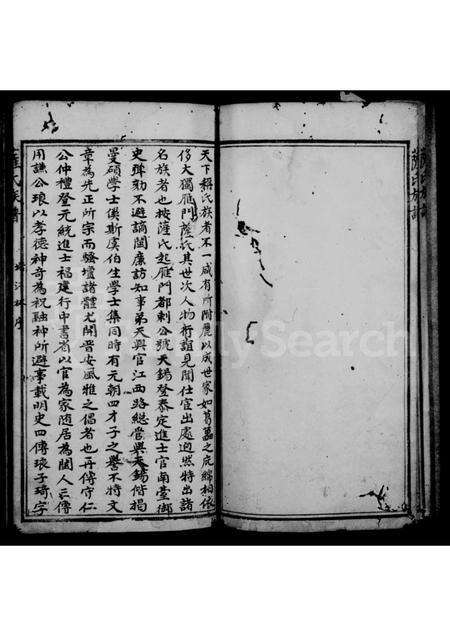 天下稱氏族者不一咸有所附麗以成世家如葛藟之庇綿相條
侈大獨雁門薩氏其世次人物行誼見聞仕宦出處迥然特出諸
名族者也按薩氏起雁門都剌公號天錫登泰定進士官南臺御
史彈劾不避謫閩廉訪知事弟天與官江西路總管與天錫偕揭
曼碩學士傒斯虞伯生學士集同時有元朝四才子之譽不特文
章為光正所宗而騷壇諸體尤開晋安風雅之倡者也再傳守仁
公仲禮登元統進士福建行中書省以官為家隨居為閩人三傳
用謙公琅以孝德神奇為祝融神所避事載明史四傳琅子琦字
氏族譜
序
FamilySearch